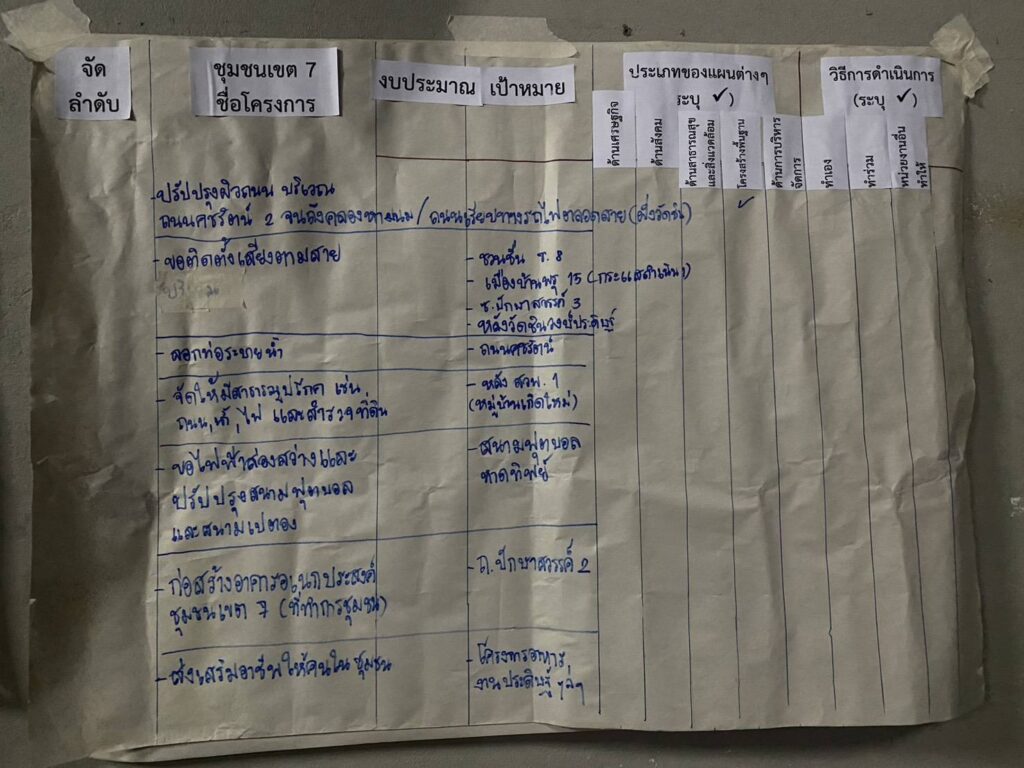 จัด
ลำดับ
ชุมชนเขต 7
ชื่อโครงการ
งบประมาณ
เป้าหมาย
ประเภทของแผนต่างๆ
ระบุ ✓ )
วิธีการดำเนินการ
(ระบุ ✓ )
ด้านเศรษฐกิจ
ด้านสังคม
ด้านสาธารณสุข
และสิ่งแวดล้อม
โครงสร้างพื้นฐาน
ด้านการบริหาร
จัดการ
ทำเอง
ทำร่วม
หน่วยงานอื่น
ทำให้
- ปรับปรุงผิวถนน บริเวณ
ถนนคชรัตน์ 2 จนถึงคลอง / ถนนเรียบทางรถไฟตลอดสาย (ฝั่งวัดชิน) ✓
- ขอติดตั้งเสียงตามสาย
- ชวนชื่น ซ. 8
- เมืองบ้านพรุ 15 (กระแสดำเนิน)
- ซ. ปักษาสวรรค์ 3
- หลังวัดชินวงษ์ประดิษฐ์
- ลอกท่อระบายน้ำ
- ถนนคชรัตน์
- จัดให้มีสาธารณูปโภค เช่น
ถนน, น้ำ, ไฟ และสำรวจที่ดิน
- หลัง สวพ. 1
(หมู่บ้านเกิดใหม่)
- ขอไฟฟ้าส่องสว่างและ
ปรับปรุงสนามฟุตบอล
และสนามเปตอง
- สนามฟุตบอล
หาดทิพย์
- ก่อสร้างอาคารอเนกประสงค์
ชุมชนเขต 7 (ที่ทำการชุมชน)
- ถ. ปักษาสวรรค์ 2
- ส่งเสริมอาชีพให้คนในชุมชน
- โครงการอาหาร,
งานประดิษฐ์ ฯลฯ